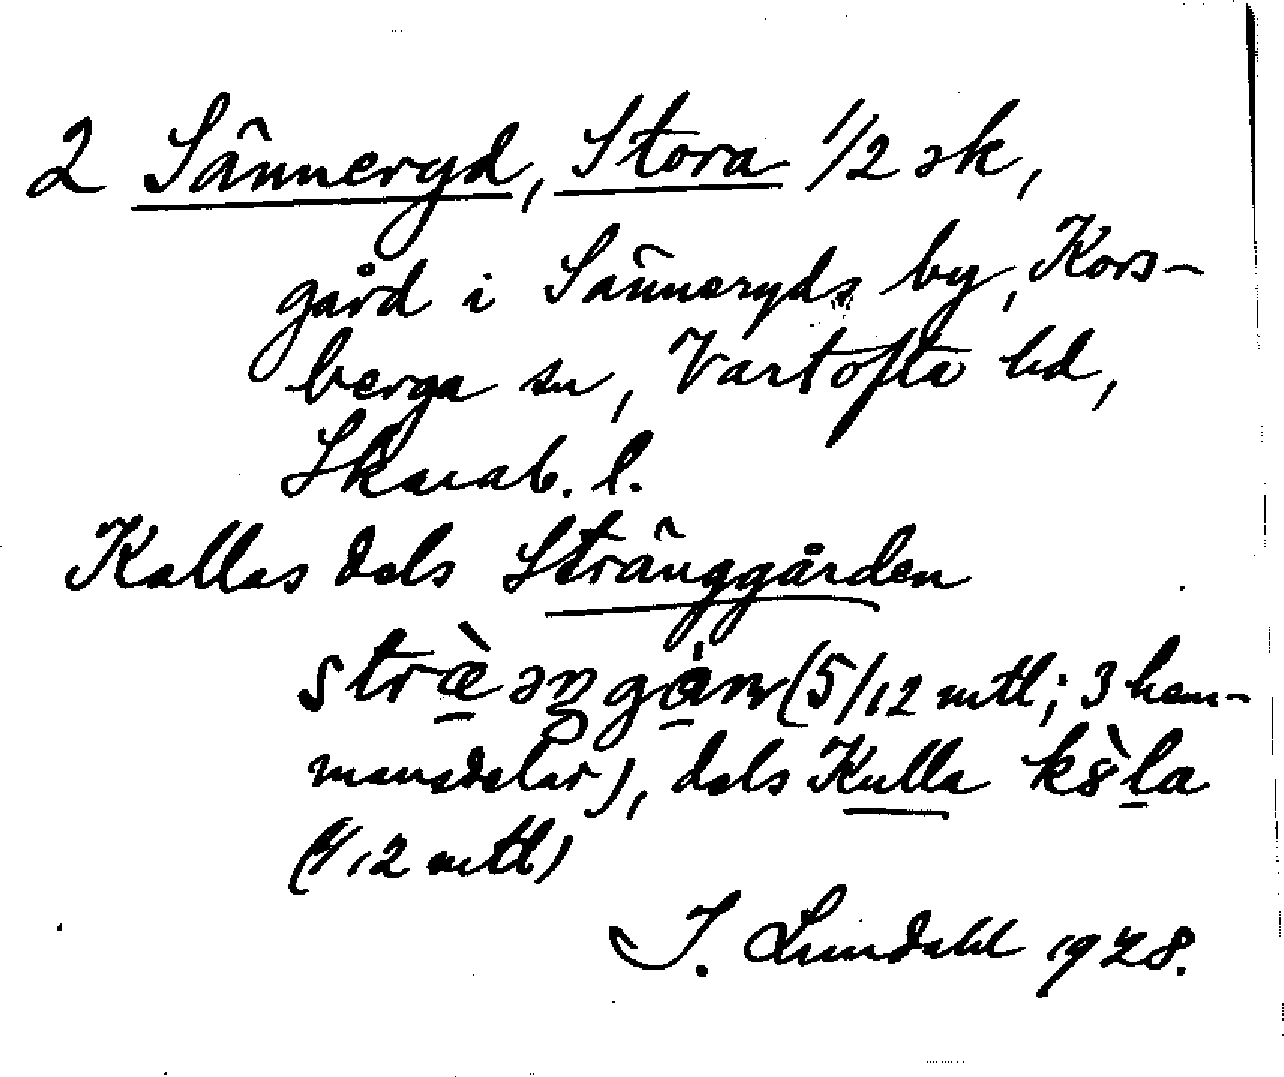 2 Sänneryd, Stora 1/2 sk,
gård i Sänneryds by, Kors-
berga sn, Vartofta hd,
Skarab. l.
Kallas dels Stränggården
(5/12 mtl; 3 hem-
mansdelar), dels Kulla
(1/12 mtl)
I. Lundahl 1928.